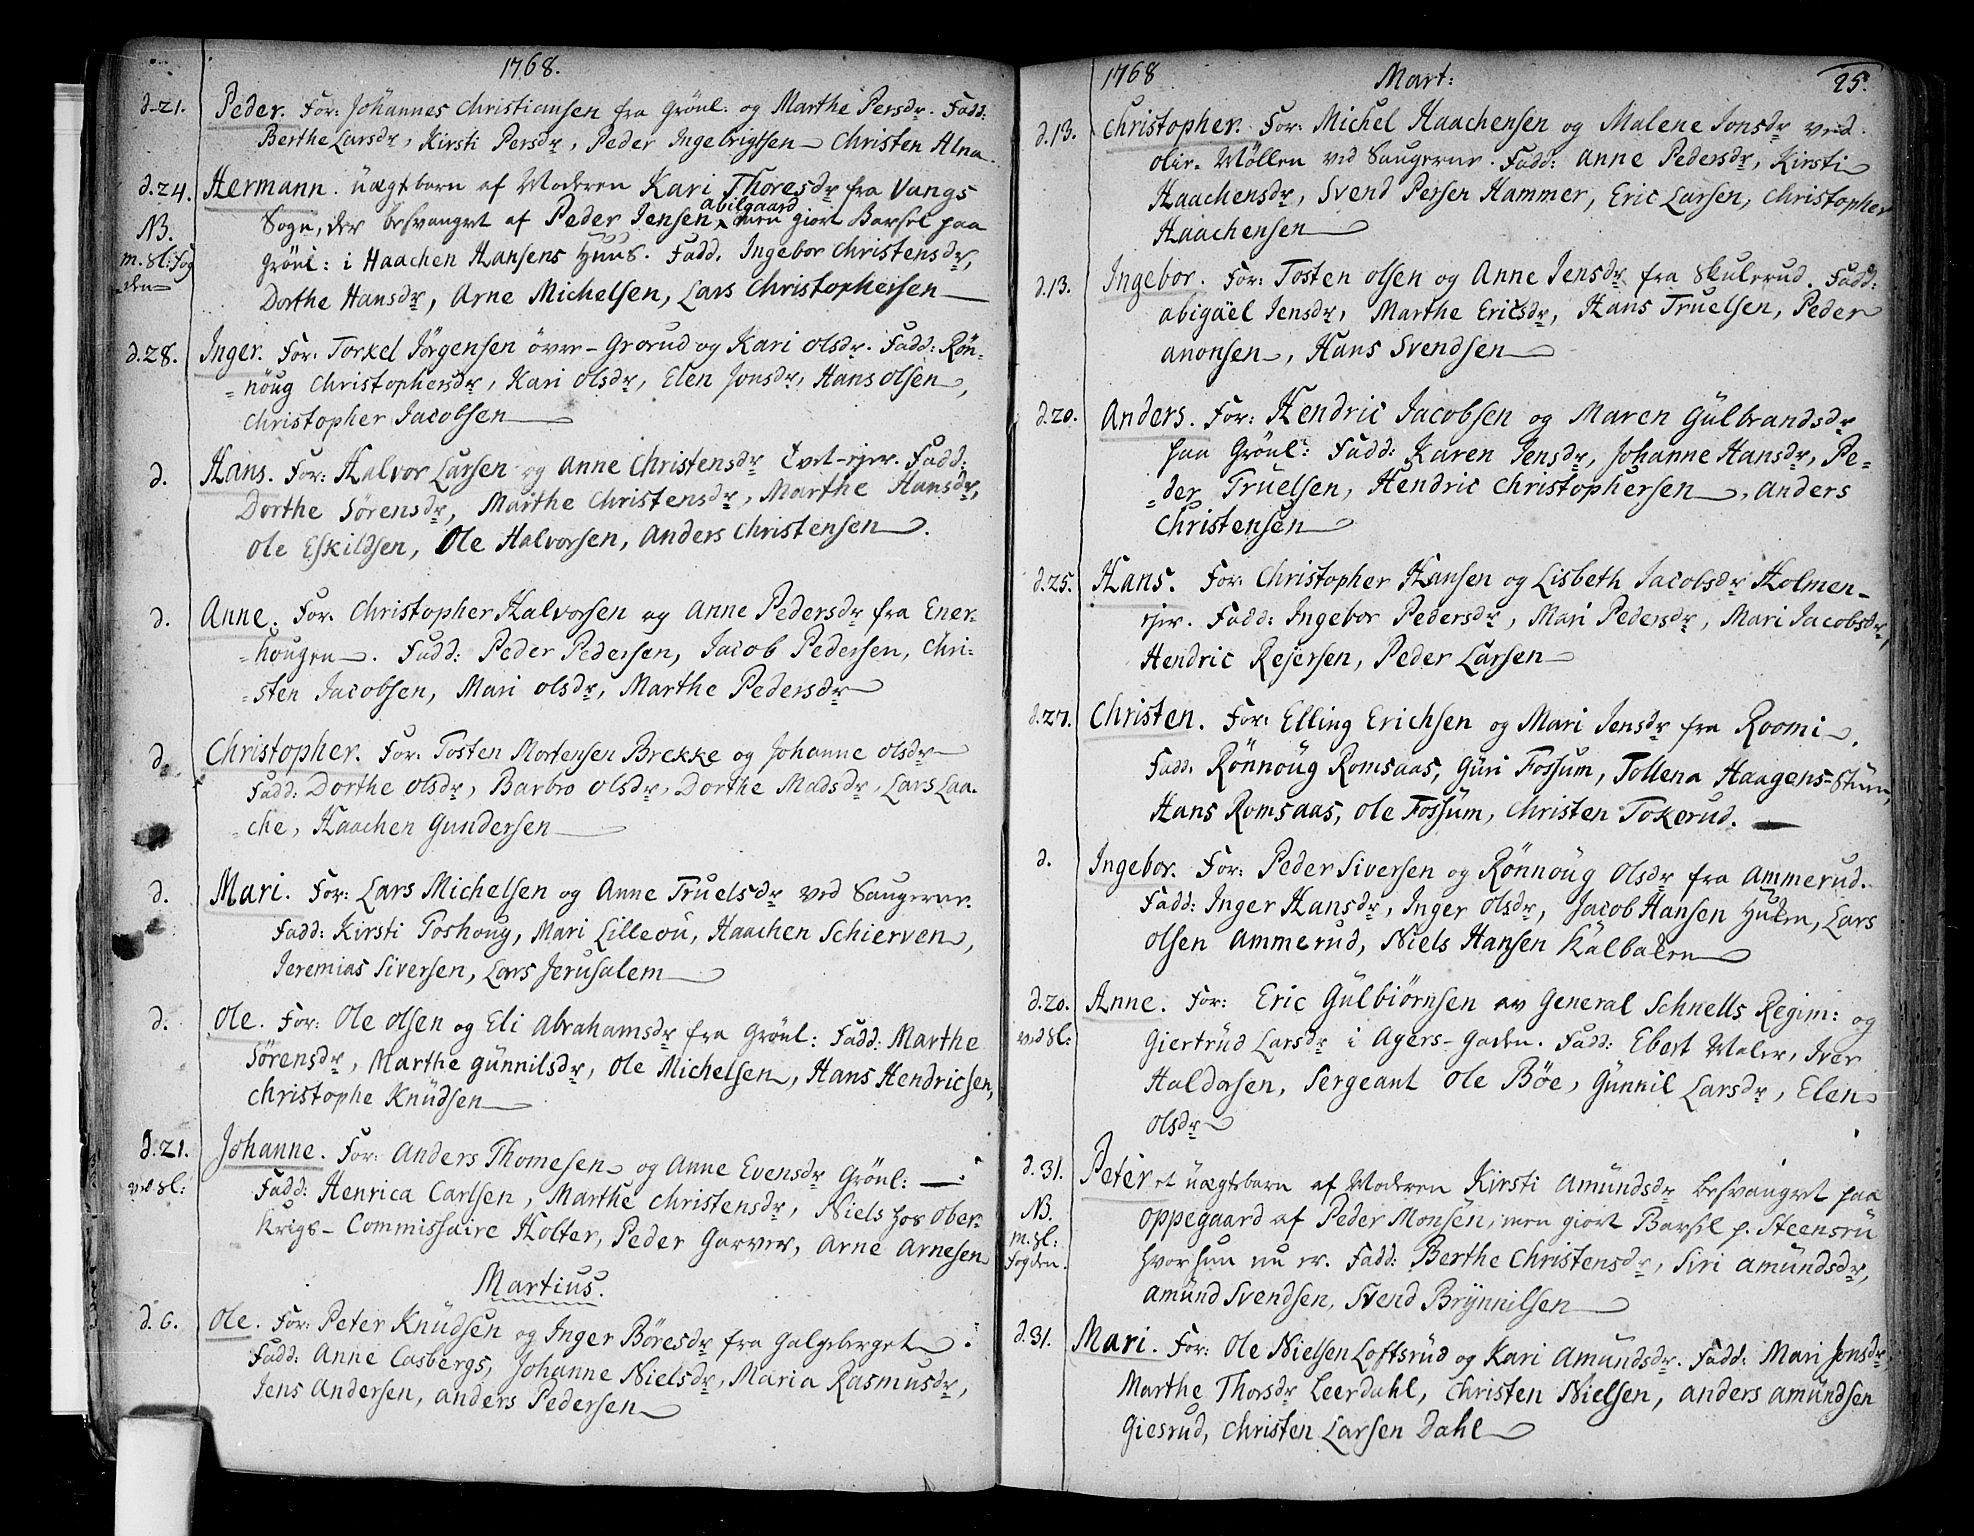 1768.
d. 21. Peder. For: Johannes Christiansen fra Grönl: og Marthe Persdr. Fadd:
Berthe Larsdr, Kirsti Persdr, Peder Ingebrigtsen Christen Alna.
d. 24. Hermann. uægtebarn af Moderen Kari Thoresdr fra Vangs
NB. Sogn, der besvangret af Peder Jensen abilgaard men giort Barsel paa
m. sl: fog Grönl: i Haachen Hansens Huus. Fadd. Ingebor Christensdr,
den Dorthe Hansdr, Arne Michelsen, Lars Christophersen
d. 28. Inger. For: Torkel Jörgensen över-Grorud og Kari Olsdr. Fadd: Rön-
=nöug Christophersdr, Kari Olsdr, Elen Jonsdr, Hans Olsen,
Christopher Jacobsen
d. Hans. For: Halvor Larsen og Anne Christensdr Tvet-ejer. Fadd:
Dorthe Sörensdr, Marthe Christensdr, Marthe Hansdr,
Ole Eskildsen, Ole Halvorsen, Anders Christensen.
d. Anne. For: Christopher Halvorsen og Anne Pedersdr fra Ener-
=hougen. Fadd: Peder Pedersen, Jacob Pedersen, Chri-
=sten Jacobsen, Mari Olsdr, Marthe Pedersdr
d. Christopher. For: Tosten Mortensen Brekke og Johanne Olsdr
Fadd: Dorthe Olsdr, Barbro Olsdr, Dorthe Madsdr, Lars Laa-
=che, Haachen Gundersen
d. Mari. For: Lars Michelsen og Anne Truelsdr ved Saugerne.
Fadd: Kirsti Toshoug, Mari Lilleöu, Haachen Schierven,
Jeremias Siversen, Lars Jerusalem
d. Ole. For: Ole Olsen og Eli Abrahamsdr fra Grönl: Fadd: Marthe
Sörensdr, Marthe Günnilsdr, Ole Michelsen, Hans Hendricsen,
Christophe Knüdsen
d. 21. Johanne. For: Anders Thomesen og Anne Evensdr Grönl:
ved sl: Fadd: Henrica Carlsen, Marthe Christensdr, Niels hos Ober-
Krigs-Commissaire Holter, Peder Garver, Arne Arnesen
Martius.
d. 6. Ole. For: Peter Knüdsen og Inger Böresdr fra Galgeberget.
Fadd: Anne Casbergs, Johanne Nielsdr, Maria Rasmusdr,
Jens Andersen, Anders Pedersen
1768 Mart: 25.
d. 13. Christopher. For: Michel Haachensen og Malene Jonsdr ved
Olie-Möllen ved Saugerne. Fadd: Anne Pedersdr, Kirsti
Haachensdr, Svend Persen Hammer, Eric Larsen, Christopher
Haachensen
d. 13. Ingebor. For: Tosten Olsen og Anne Jensdr fra Skulerud. Fadd:
Abigäel Jensdr, Marthe Ericsdr, Hans Truelsen, Peder
Anonsen, Hans Svendsen
d. 20. Anders. For: Hendric Jacobsen og Maren Gülbrandsdr
paa Grönl: Fadd: Karen Jensdr, Johanne Hansdr, Pe-
=der Truelsen, Hendric Christophersen, Anders
Christensen
d. 25. Hans. For: Christopher Hansen og Lisbeth Jacobsdr Holmen-
ejer. Fadd: Ingebor Pedersdr, Mari Pedersdr, Mari Jacobsdr,
Hendric Rejersen, Peder Larsen
d. 27. Christen. For: Elling Erichsen og Mari Jensdr fra Roomi.
Fadd: Rönnöug Romsaas, Güri Fossum, Tollena Haagens-Stüen,
Hans Romsaas, Ole Fossum, Christen Tokerud.
d. Ingebor. For: Peder Siversen og Rönnoüg Olsdr fra Ammerud.
Fadd: Inger Hansdr, Inger Olsdr, Jacob Hansen Huken, Lars
Olsen Ammerud, Niels Hansen Kalbaken
d. 20. Anne. For: Eric Gülbiörnsen av General Schnells Regim: og
ved sl: Giertrüd Larsdr i Agers-Gaden. Fadd: Ebert Maler, Iver
Haldorsen, Sergeant Ole Böe, Günnil Larsdr, Elen
Olsdr
d. 31. Peter et uægtebarn af Moderen Kirsti Amündsdr besvangret paa
NB. Oppegaard af Peder Monsen, men giort Barsel p. Steensrü
m. sl: hvor hun nu er. Fadd: Berthe Christensdr, Siri Amündsdr,
fogden. Amünd Svendsen, Svend Brÿnnilsen
d. 31. Mari. For: Ole Nielsen Loftsrüd og Kari Amündsdr. Fadd: Mari Jonsdr,
Marthe Thorsdr Leerdahl, Christen Nielsen, Anders Amündsen
Giesrud, Christen Larsen Dahl